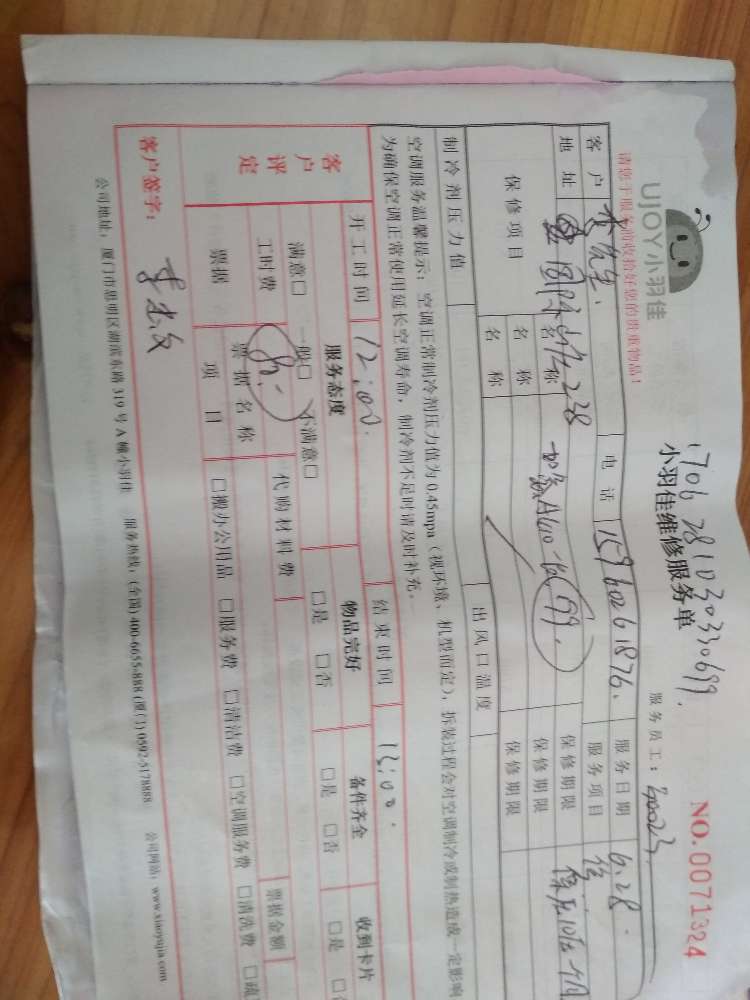 UJOY小羽佳
请您于服务前收拾好您的贵重物品!
1706281030330699.
小羽佳维修服务单
NO.0071324
服务员工:
客户 李先生. 电话 15960261876. 服务日期 6.28.
地址 238 服务项目
保修项目 名称 加氟A410一台(99. 保修期限
名称 保修期限
名称 保修期限
制冷剂压力值 出风口温度
空调服务温馨提示:空调正常制冷剂压力值为0.45mpa(视环境、机型而定),拆装过程会对空调制冷或制热造成一定影响
为确保空调正常使用延长空调寿命,制冷剂不足时请及时补充。
开工时间 12:00. 结束时间 13:00.
客户评定 服务态度 物品完好 备件齐全 收到卡片
满意□ 一般□ 不满意□ □是 □否 □是 □否 □是
工时费 代购材料费
票据 票据名称 票据金额
项目 □搬办公用品 □服务费 □清洁费 □空调服务费 □清洗费
客户签字:
公司地址:厦门市思明区湖滨东路319号A幢小羽佳 服务热线:(全国)400-6655-888 (厦门)0592-5178888 公司网站:www.xiaoyujia.com